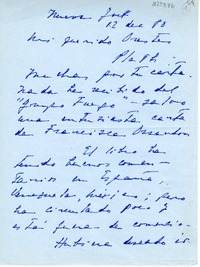 Nueva York
12 dec 83
Mi querido Orestes
Plath:
Muchas por tu carta.
Nada he recibido del
"Grupo Fuego" - salvo
una entusiasta carta
de Francisca Ossandon
El libro ha
tenido buenos comen-
tarios en España,
Venezuela, México; pero
ha circulado poco y
está fuera de comercio.
Hubiera deseado